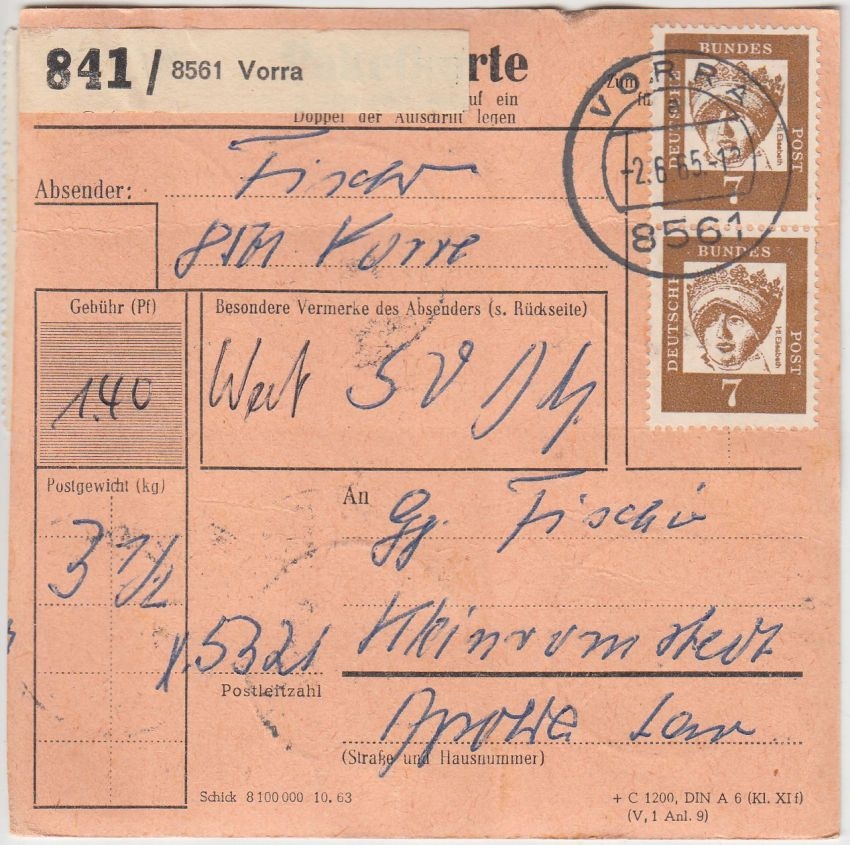 841 / 8561 Vorra
rte
Zum
uf ein
Doppel der Aufschrift legen
VORRA
a
-2.6.65.-12
8561
BUNDES
DEUTSCHE
POST
Hl. Elisabeth
7
BUNDES
DEUTSCHE
POST
Hl. Elisabeth
7
Absender: Fischer
8561 Vorra
Gebühr (Pf)
1.40
Besondere Vermerke des Absenders (s. Rückseite)
Wert 50 DM
Postgewicht (kg)
3 1/2
An Gg. Fischer
Kleinromstedt
5321
Postleitzahl
Apolda Land
(Straße und Hausnummer)
Schick 8 100 000 10. 63
+ C 1200, DIN A 6 (Kl. XI f)
(V, 1 Anl. 9)